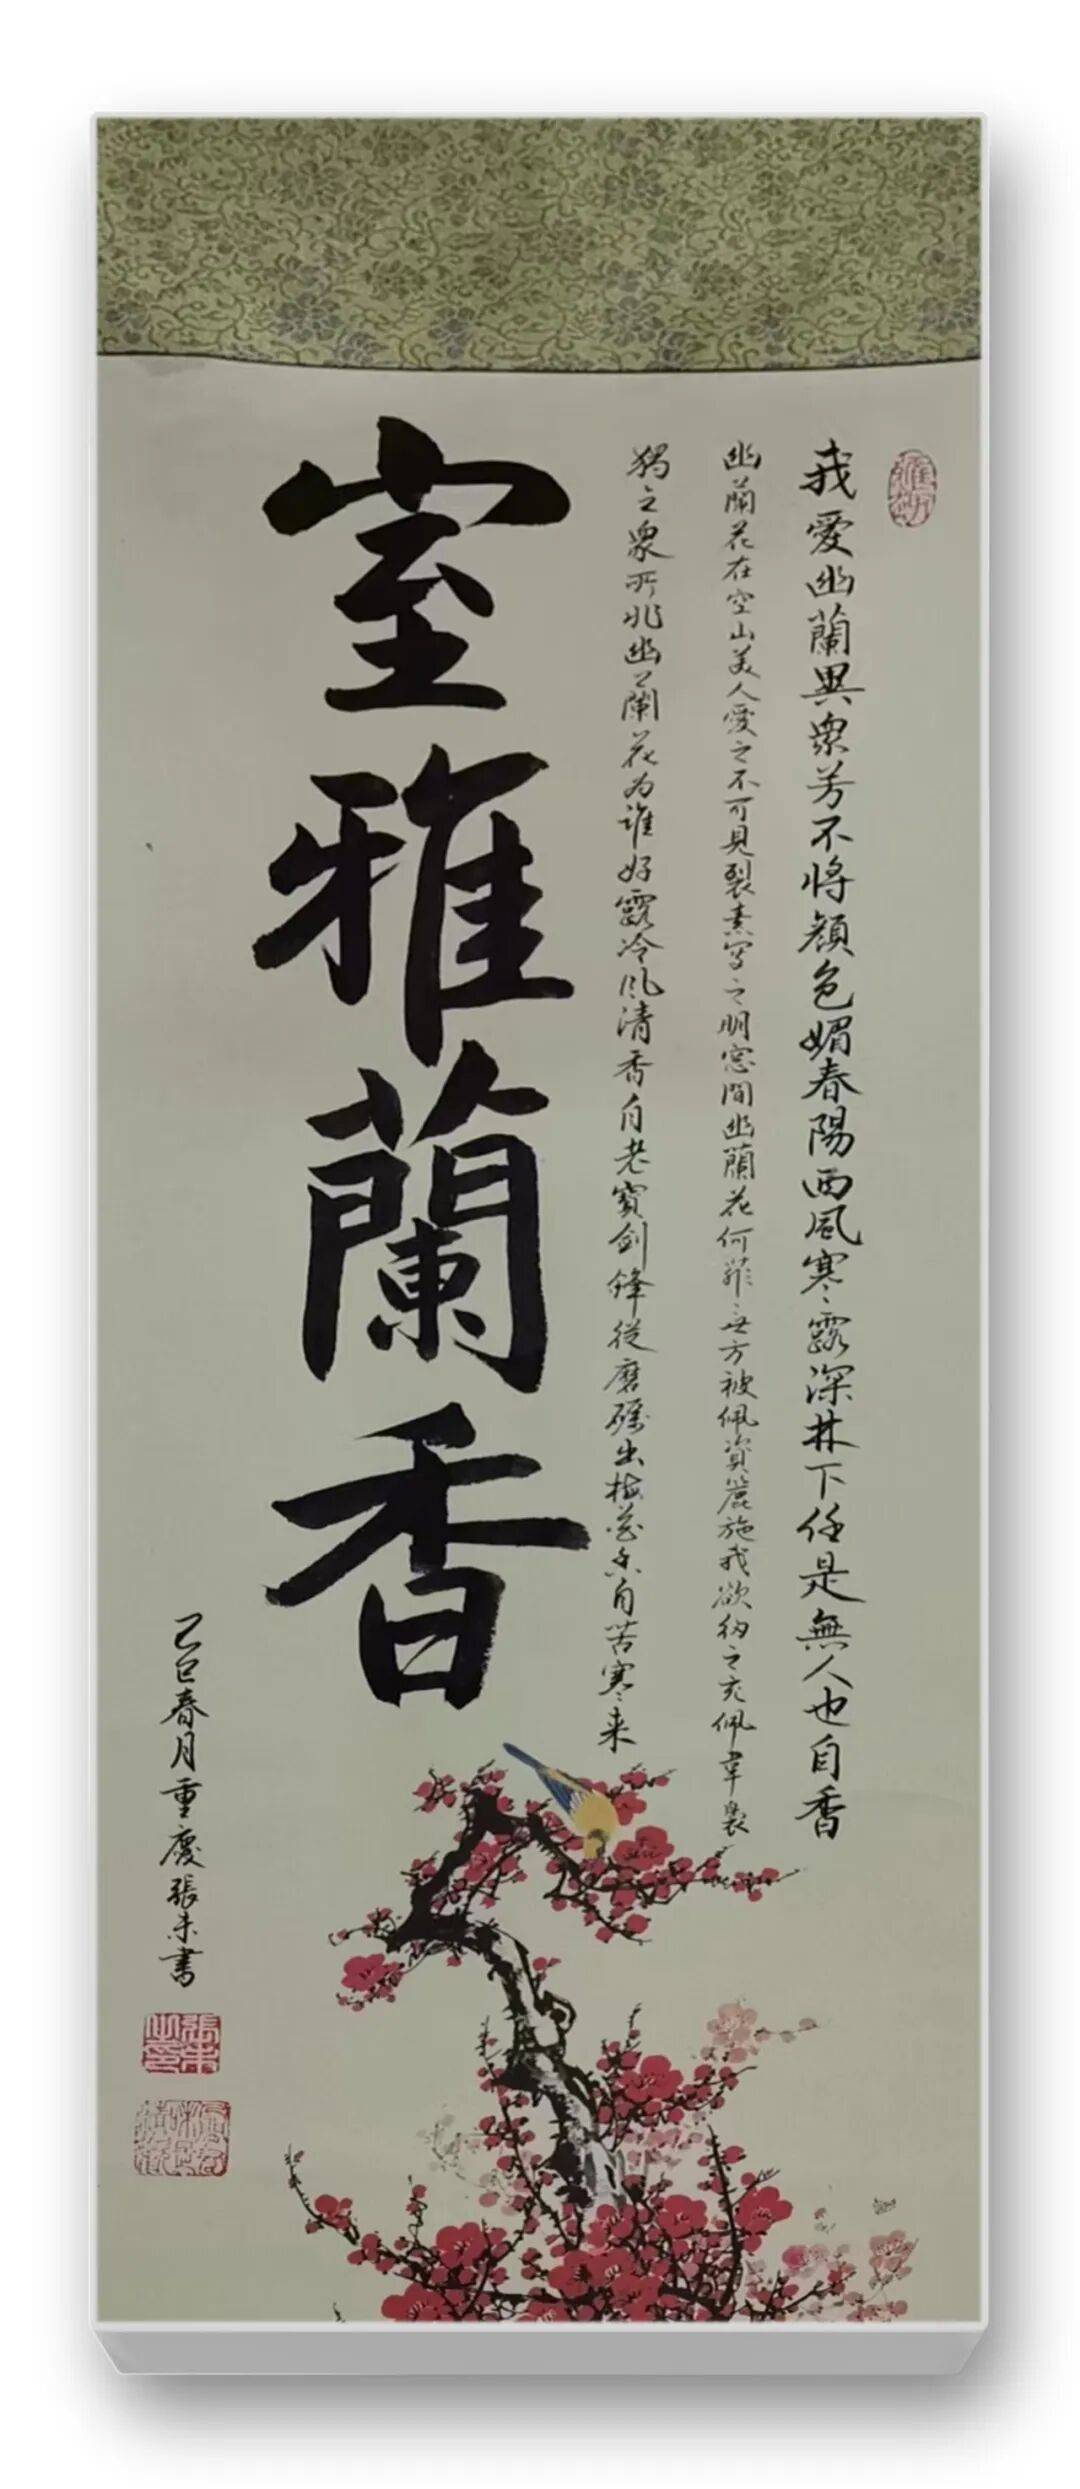 我愛幽蘭異衆芳不将顔色媚春陽西風寒露深林下任是無人也自香
幽蘭花在空山美人愛之不可見裂素写之明窓間幽蘭花何菲〻世方被佩資簏施我欲紉之充佩韋裊
獨立衆所非幽蘭花为誰好露冷风清香自老寳剑鋒從磨礪出梅花香自苦寒来
室雅蘭香
乙巳春月重慶張未書
張未之印